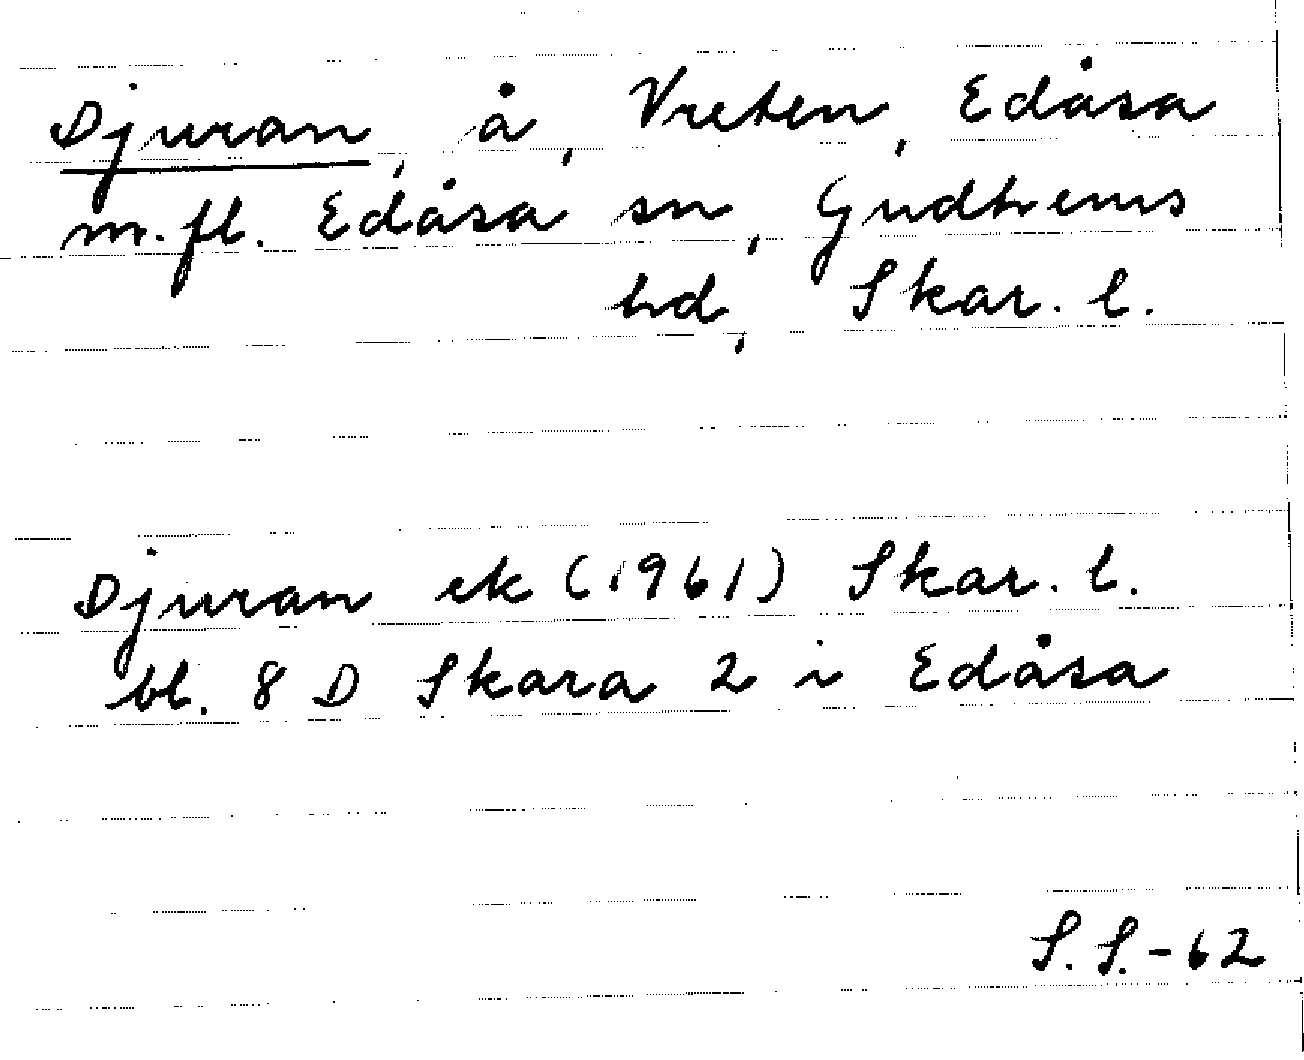 Djuran, å, Vreten, Edåsa
m.fl. Edåsa sn, Gudhems
hd, Skar. l.
Djuran ek (1961) Skar. l.
bl. 8 D Skara 2 i Edåsa
S.S.-62